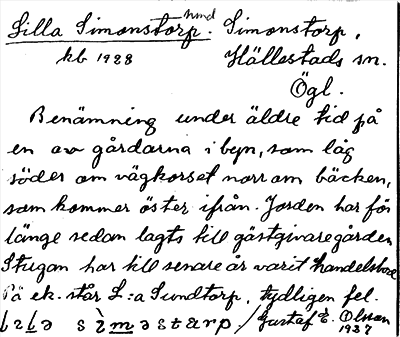 Lilla Simonstorp. hmd Simonstorp,
kb 1928 Hällestads sn.
Ögl.
Benämning under äldre tid på
en av gårdarna i byn, som låg
söder om vägkorset norr om bäcken,
som kommer öster ifrån. Jorden har för
länge sedan lagts till gästgivaregården
Stugan har till senare år varit handelsbod
På ek. står L:a Sundtorp, tydligen fel.
Gustaf E. Olsson
1937